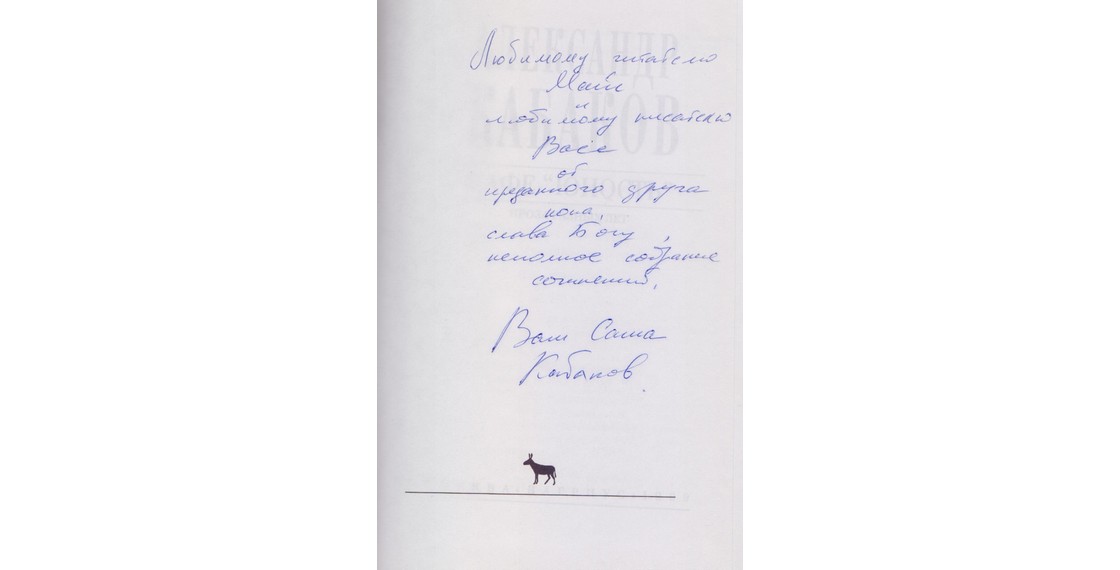 Любимому читателю
Майе
и
любимому писателю
Васе
от
преданного друга
пока,
слава Богу,
неполное собрание
сочинений.
Ваш Саша
Кабаков.
АЛЕКСАНДР
КАБАКОВ